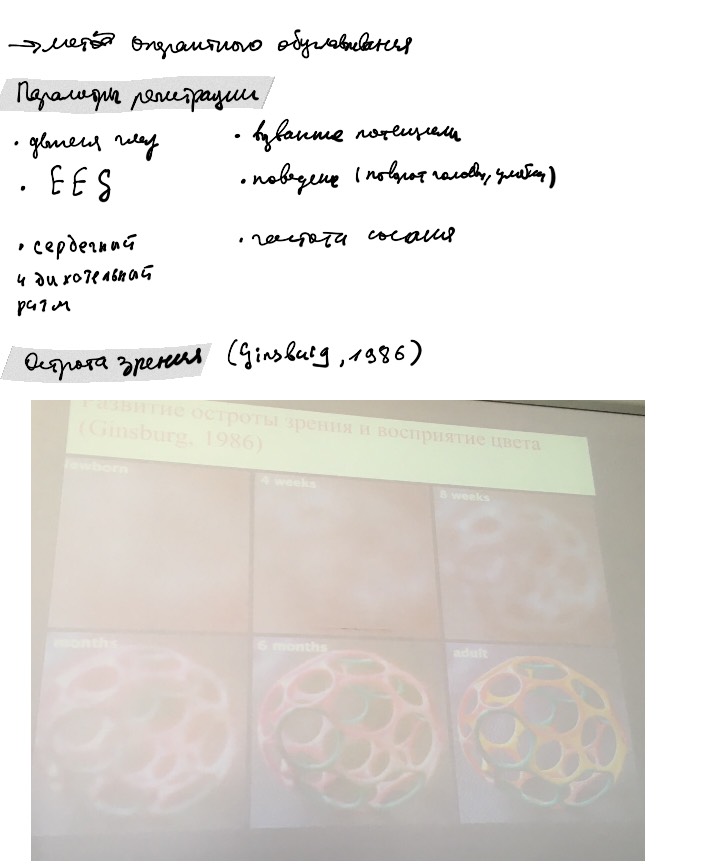 → метод оперантного обуславливания
Параметры регистрации
• движения глаз
• EEG
• сердечный
и дыхательный
ритм
• вызванные потенциалы
• поведение (поворот головы, улыбка)
• частота сосания
Острота зрения (Ginsburg, 1986)
Развитие остроты зрения и восприятие цвета
(Ginsburg, 1986)
newborn
4 weeks
8 weeks
months
6 months
adult